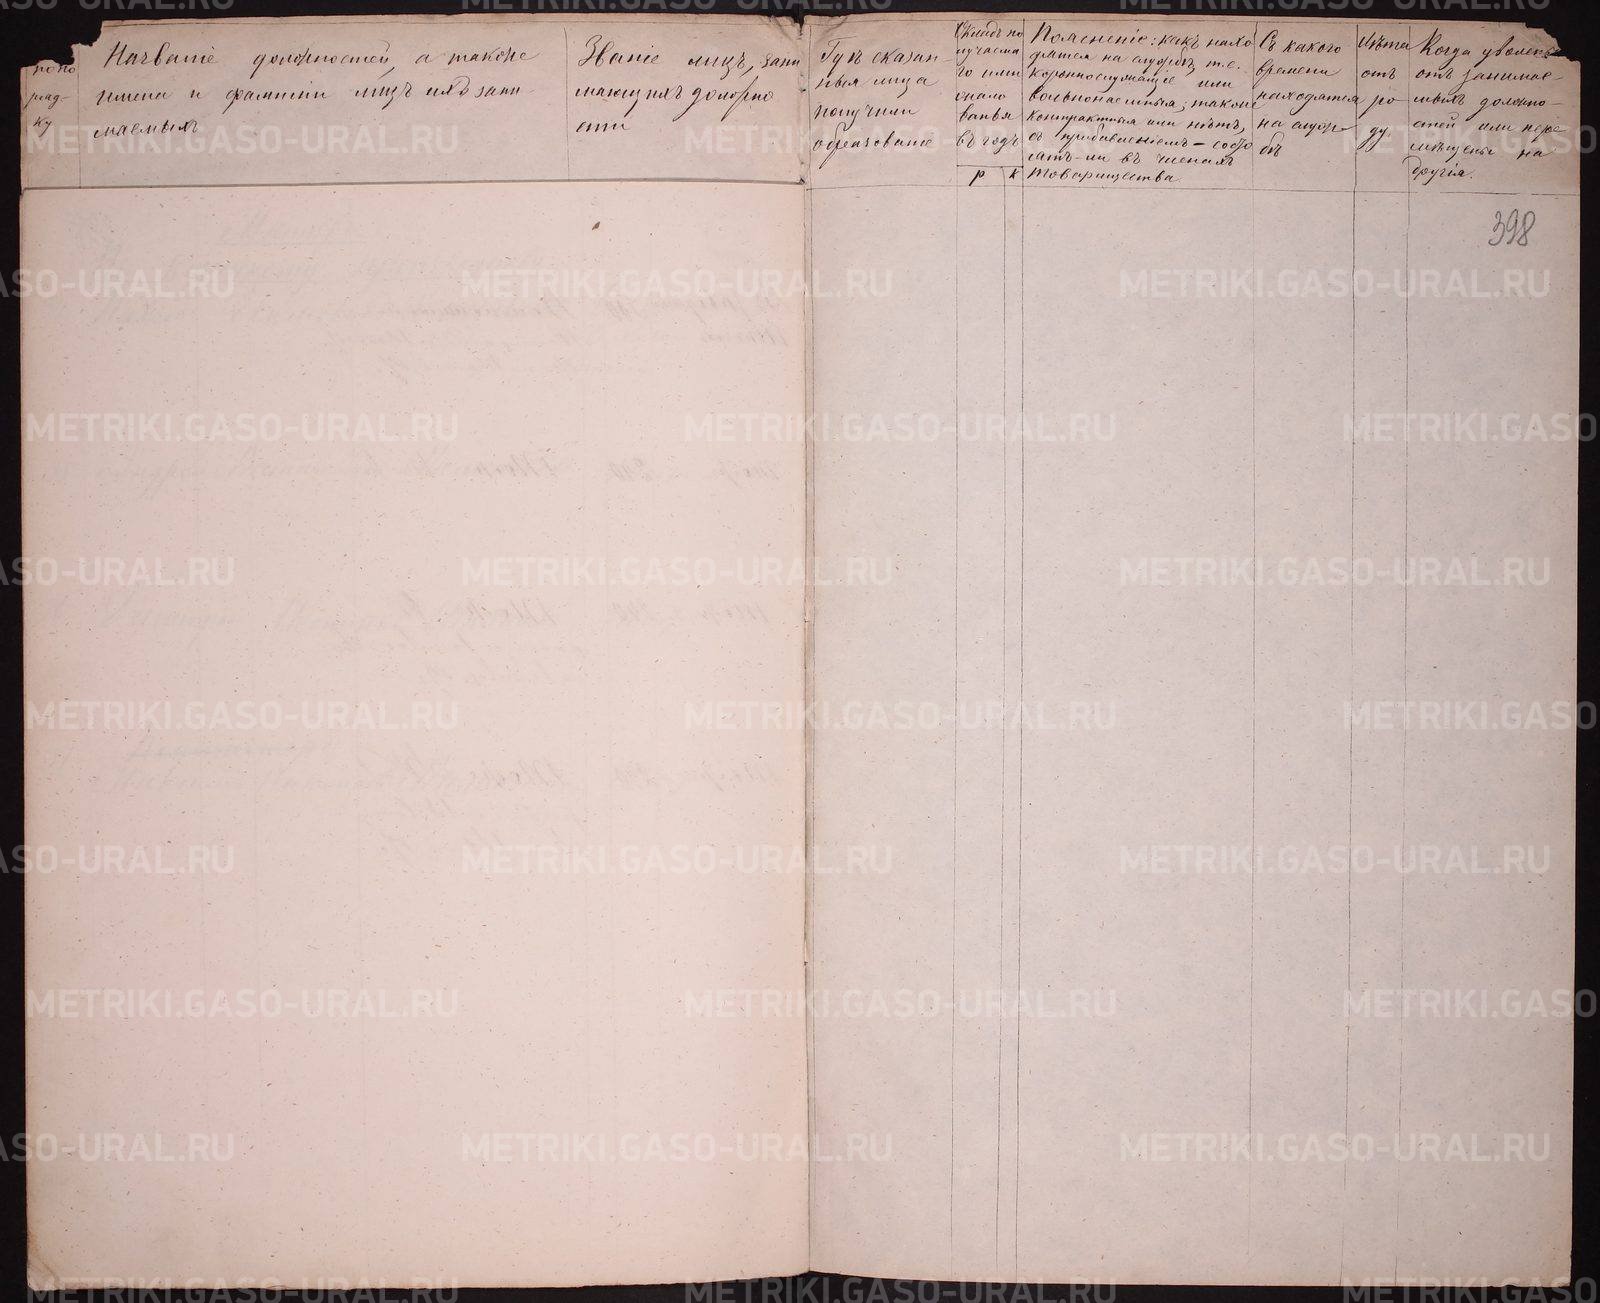 по по
ряд-
ку
Названіе должностей, а также
имена и фамиліи лицъ ихъ зани-
маемыхъ
Званіе лицъ, зани
мающихъ должно
сти
Гдѣ сказан-
ныя лица
получили
образованіе
Окладъ по
лучаема
го ими
жало
ванья
въ годъ
р к
Поясненіе: какъ нахо
дятся на службѣ, т.е.
коронно служащіе или
вольнонаемные; также
контрактные или нѣтъ,
съ прибавленіемъ – состо
ятъ-ли въ членахъ
товарищества.
Съ какого
времени
находятся
на служ-
бѣ
Лѣта
отъ
ро-
ду
Когда уволены
отъ занимае-
мыхъ должно-
стей или пере
мѣщены на
другія.
398
METRIKI.GASO-URAL.RU